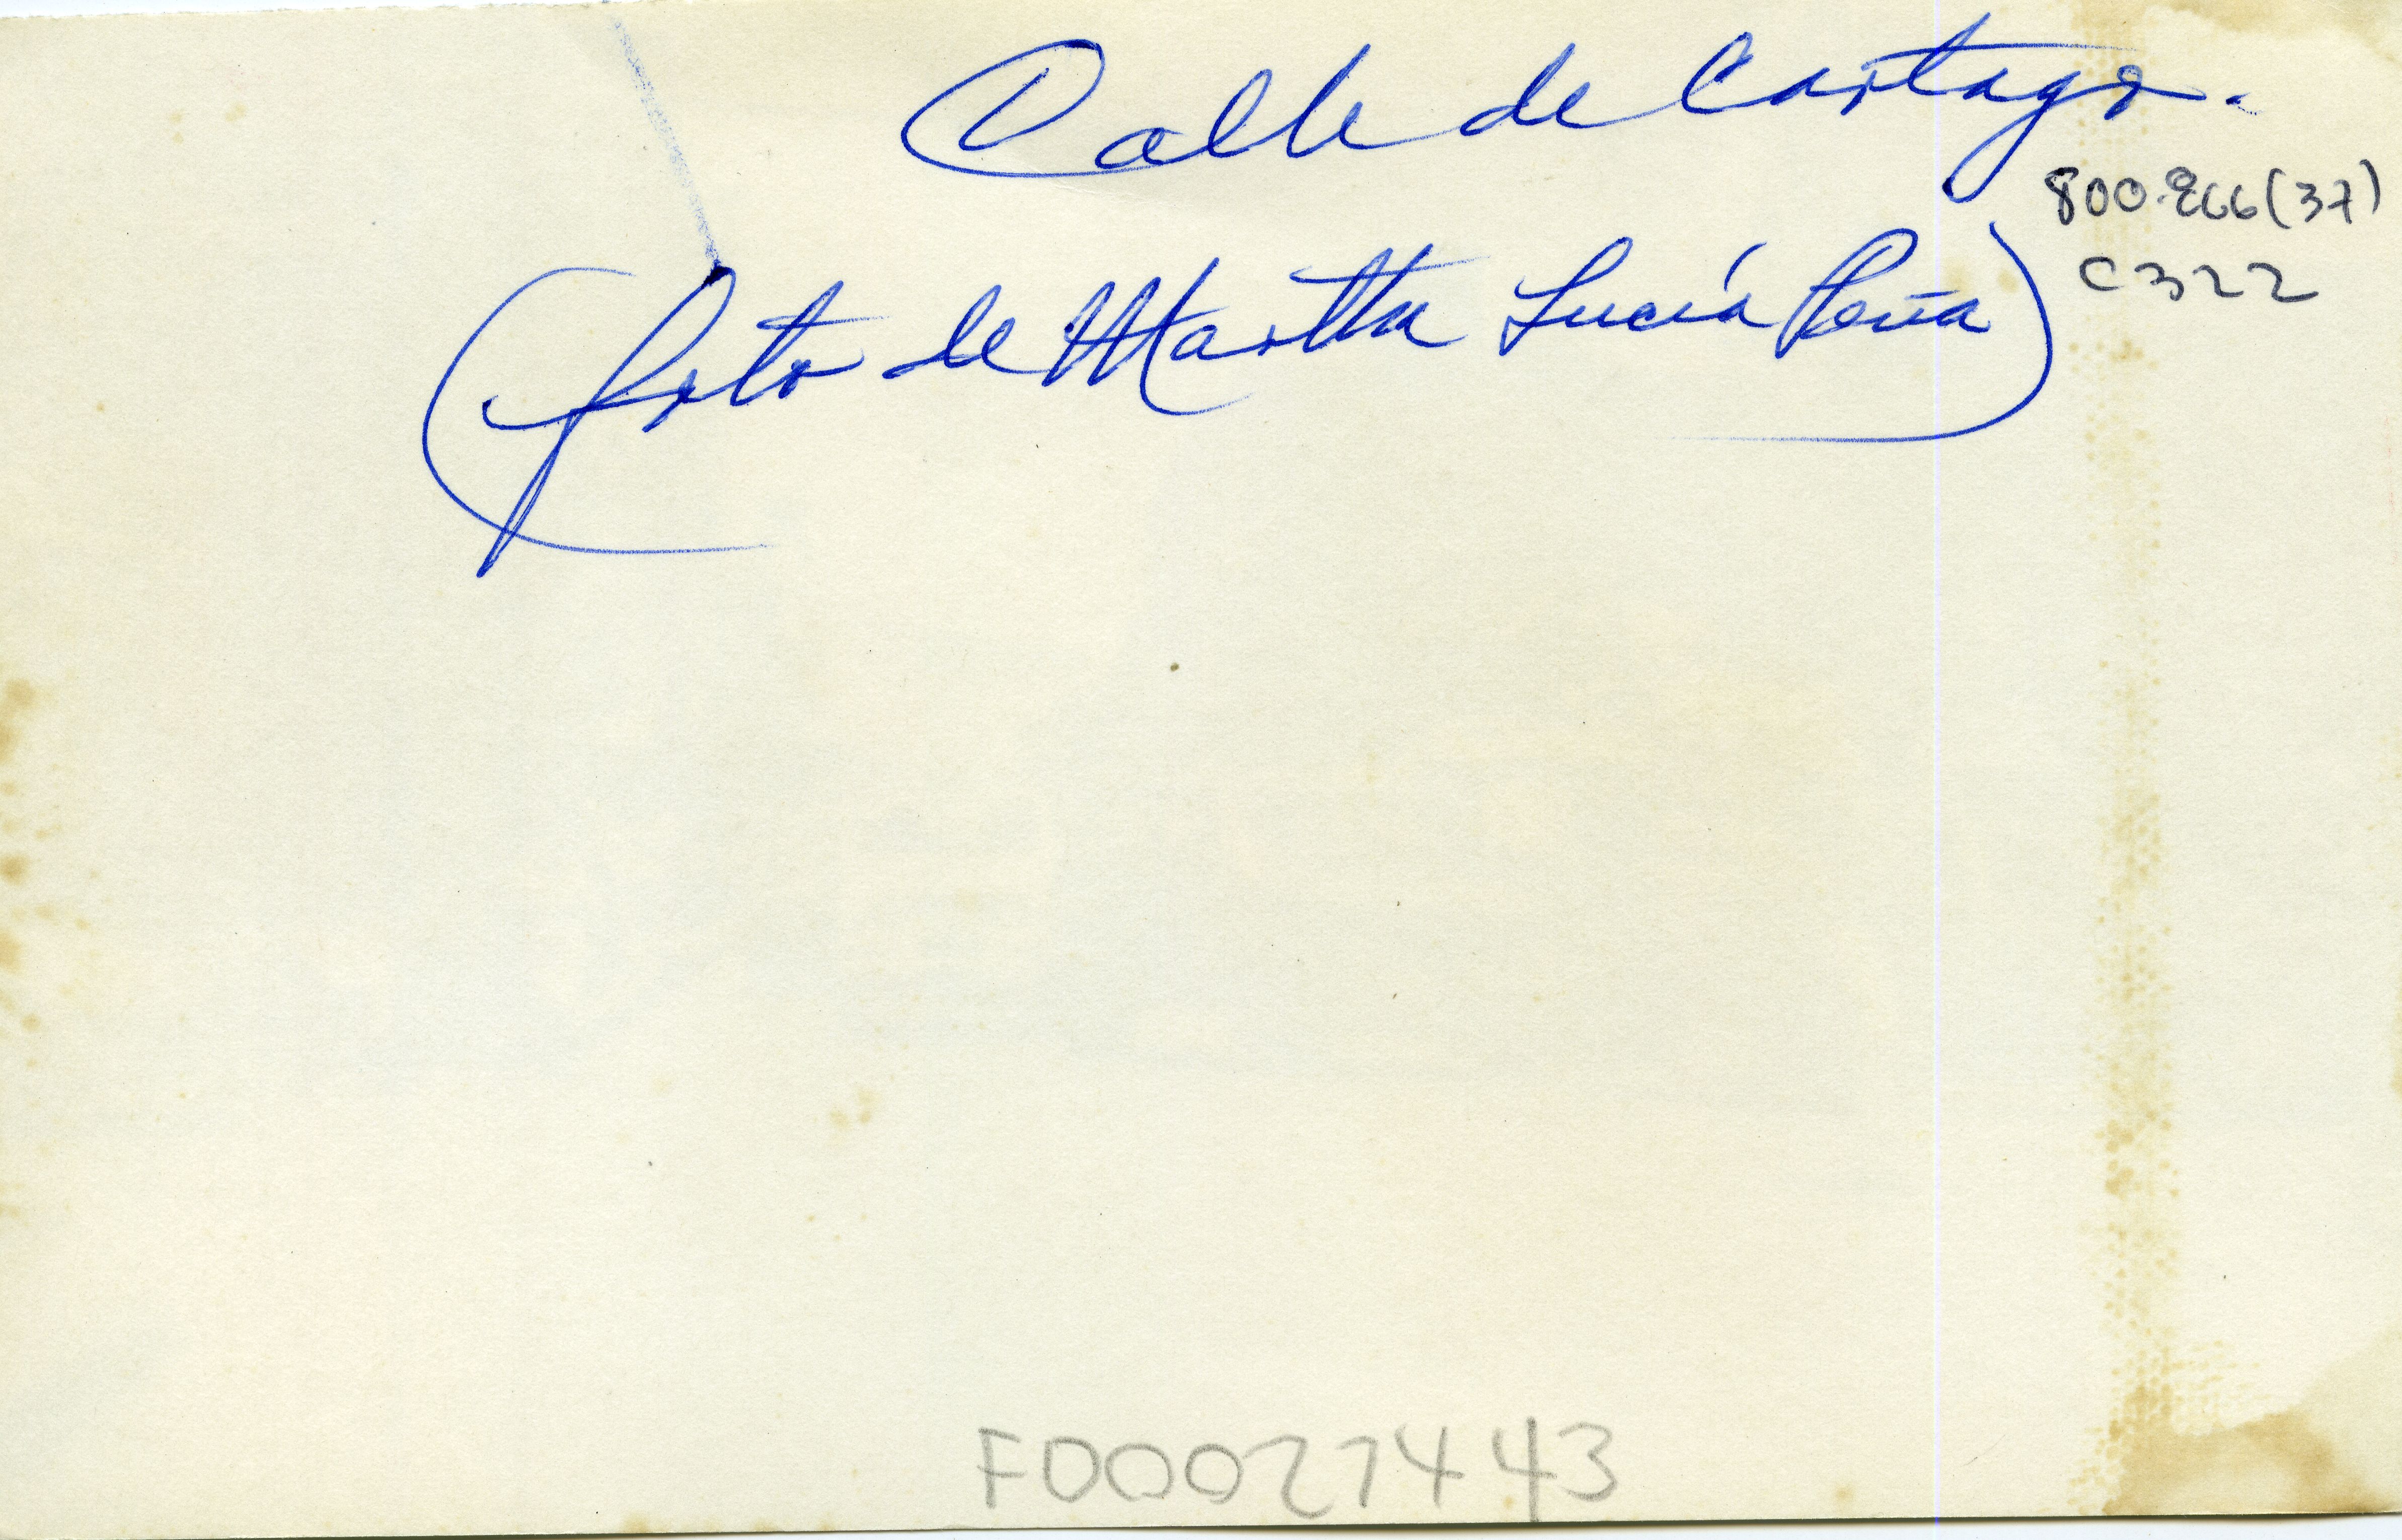 Calle de Cartago.
800.866(37)
C322
(foto de Martha Lucía Peña)
F00027443